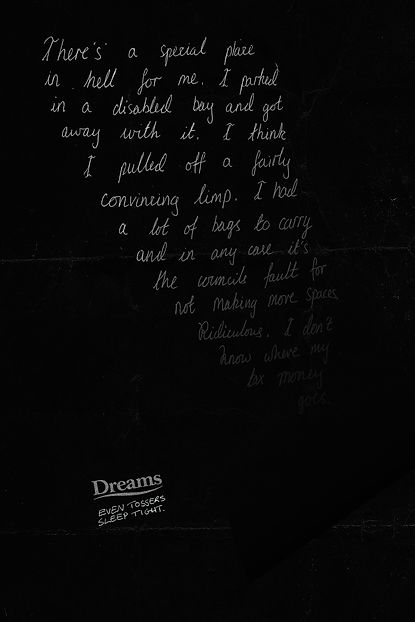 There's a special place
in hell for me. I parked
in a disabled bay and got
away with it. I think
I pulled off a fairly
convincing limp. I had
a lot of bags to carry
and in any case it's
the councils fault for
not making more spaces.
Ridiculous. I don't
know where my
tax money
goes.
Dreams
EVEN TOSSERS
SLEEP TIGHT.